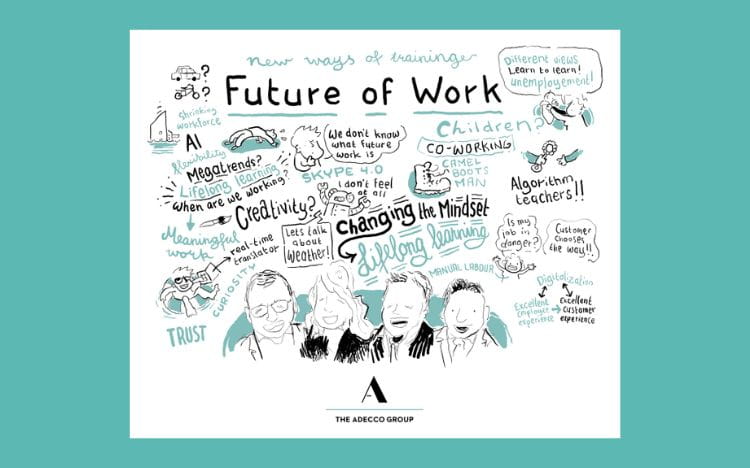 new ways of training
Future of Work
Different views
Learn to learn!
unemployement!
?
?
Shrinking
workforce
AI
flexibility
Megatrends?
Lifelong learning
When are we working?
We don't know
what future
work is
SKYPE 4.0
I don't feel
at all
Children?
CO-WORKING
CAMEL
BOOTS
MAN
Algorithm
teachers!!
Creativity?
Changing the Mindset
Lifelong learning
Let's talk
about
Weather!
Meaningful
work
real-time
translator
CURIOSITY
TRUST
MANUAL LABOUR
Is my
job in
danger?
Customer
chooses
the way!!
Digitalization
Excellent
Employee
experience
Excellent
customer
experience
A
THE ADECCO GROUP